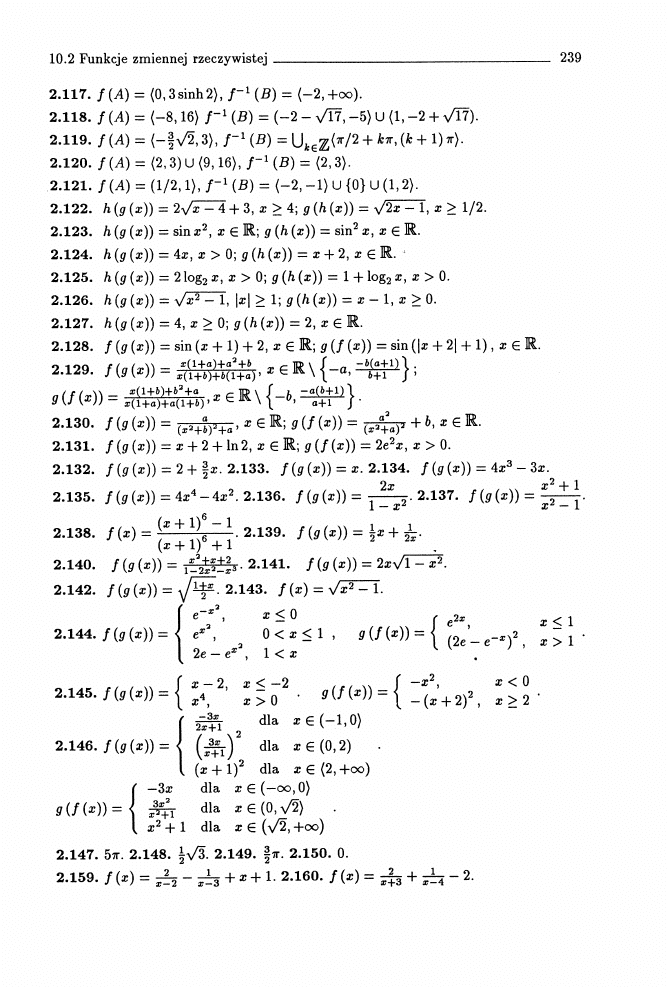 10.2 Funkcje zmiennej rzeczywistej 239
2.117. f (A) = ⟨0, 3 sinh 2⟩, f⁻¹ (B) = ⟨−2, +∞).
2.118. f (A) = ⟨−8, 16⟩ f⁻¹ (B) = (−2 − √17, −5⟩ ∪ ⟨1, −2 + √17).
2.119. f (A) = ⟨−3/2 √2, 3⟩, f⁻¹ (B) = ⋃ₖ∈ℤ⟨π/2 + kπ, (k + 1) π⟩.
2.120. f (A) = ⟨2, 3) ∪ ⟨9, 16⟩, f⁻¹ (B) = ⟨2, 3⟩.
2.121. f (A) = (1/2, 1⟩, f⁻¹ (B) = ⟨−2, −1) ∪ {0} ∪ (1, 2⟩.
2.122. h (g (x)) = 2√(x − 4) + 3, x ≥ 4; g (h (x)) = √(2x − 1), x ≥ 1/2.
2.123. h (g (x)) = sin x², x ∈ ℝ; g (h (x)) = sin² x, x ∈ ℝ.
2.124. h (g (x)) = 4x, x > 0; g (h (x)) = x + 2, x ∈ ℝ.
2.125. h (g (x)) = 2 log₂ x, x > 0; g (h (x)) = 1 + log₂ x, x > 0.
2.126. h (g (x)) = √(x² − 1), |x| ≥ 1; g (h (x)) = x − 1, x ≥ 0.
2.127. h (g (x)) = 4, x ≥ 0; g (h (x)) = 2, x ∈ ℝ.
2.128. f (g (x)) = sin (x + 1) + 2, x ∈ ℝ; g (f (x)) = sin (|x + 2| + 1), x ∈ ℝ.
2.129. f (g (x)) = (x(1+a)+a²+b)/(x(1+b)+b(1+a)), x ∈ ℝ \ {−a, −b(a+1)/(b+1)};
g (f (x)) = (x(1+b)+b²+a)/(x(1+a)+a(1+b)), x ∈ ℝ \ {−b, −a(b+1)/(a+1)}.
2.130. f (g (x)) = a/((x²+b)²+a), x ∈ ℝ; g (f (x)) = a²/(x²+a)² + b, x ∈ ℝ.
2.131. f (g (x)) = x + 2 + ln 2, x ∈ ℝ; g (f (x)) = 2e²x, x > 0.
2.132. f (g (x)) = 2 + 3/2 x. 2.133. f (g (x)) = x. 2.134. f (g (x)) = 4x³ − 3x.
2.135. f (g (x)) = 4x⁴ − 4x². 2.136. f (g (x)) = 2x/(1 − x²). 2.137. f (g (x)) = (x² + 1)/(x² − 1).
2.138. f (x) = ((x + 1)⁶ − 1)/((x + 1)⁶ + 1). 2.139. f (g (x)) = 1/2 x + 1/(2x).
2.140. f (g (x)) = (x²+x+2)/(1−2x²−x³). 2.141. f (g (x)) = 2x√(1 − x²).
2.142. f (g (x)) = √((1+x)/2). 2.143. f (x) = √(x² − 1).
2.144. f (g (x)) = { e^(−x²), x ≤ 0
e^(x²), 0 < x ≤ 1
2e − e^(x²), 1 < x , g (f (x)) = { e^(2x), x ≤ 1
(2e − e^(−x))², x > 1 .
2.145. f (g (x)) = { x − 2, x ≤ −2
x⁴, x > 0 . g (f (x)) = { −x², x < 0
− (x + 2)², x ≥ 2 .
2.146. f (g (x)) = { −3x/(2x+1) dla x ∈ (−1, 0⟩
(3x/(x+1))² dla x ∈ (0, 2)
(x + 1)² dla x ∈ ⟨2, +∞) .
g (f (x)) = { −3x dla x ∈ (−∞, 0⟩
3x²/(x²+1) dla x ∈ (0, √2⟩
x² + 1 dla x ∈ (√2, +∞) .
2.147. 5π. 2.148. 1/2 √3. 2.149. 3/2 π. 2.150. 0.
2.159. f (x) = 2/(x−2) − 1/(x−3) + x + 1. 2.160. f (x) = 2/(x+3) + 1/(x−4) − 2.